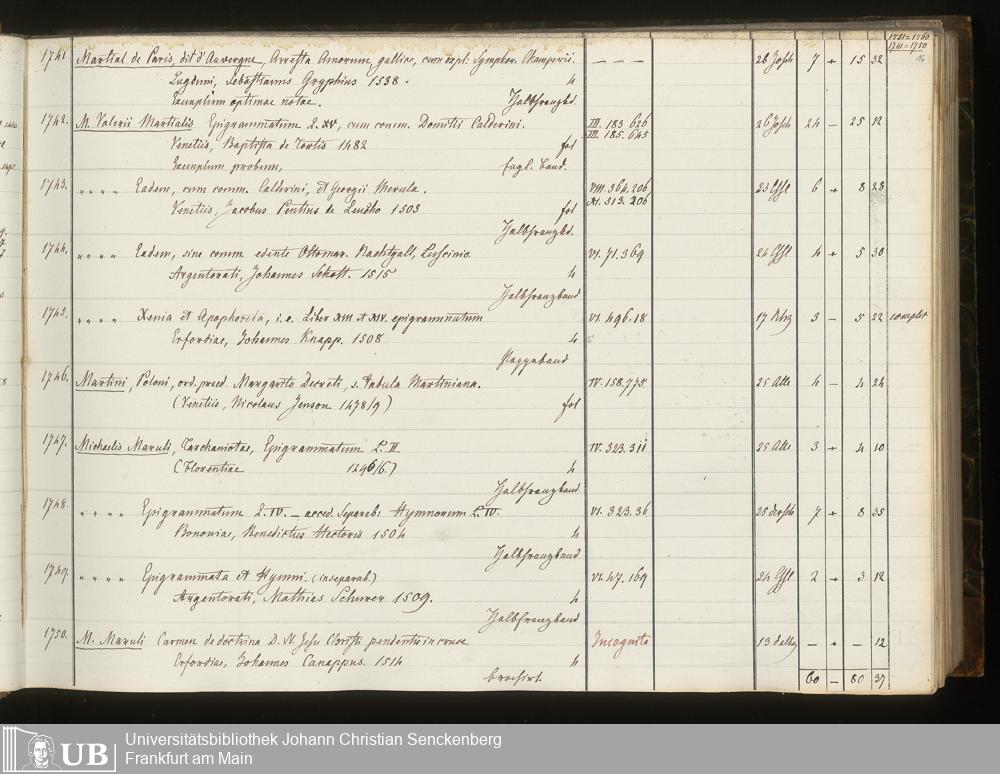 1751=1760
1741=1750
1741. Martial de Paris, dit d'Auvergne, Arresta Amorum, gallice, cum expl. Symphor. Champerii. — — — 7 + 15 32
Lugduni, Sebastianus Gryphius 1538. 4
Exemplum optimae notae. Halbfranzbd.
1742. M. Valerii Martialis Epigrammatum L. XV, cum comm. Domitii Calderini. III. 183. 626 24 — 25 12
III. 185. 645
Venetiis, Baptista de Tortis 1482 fol
Exemplum probum, Engl. Band.
1743. " " " " Eadem, cum comm. Calderini, et Georgii Merula. VIII. 364. 206 6 + 8 28
XI. 313. 206
Venetiis, Jacobus Pentius de Leucho 1503 fol
Halbfranzbd.
1744. " " " " Eadem, sine comm. edente Ottomar. Nachtgall, Luscinio. VI. 71. 369 4 + 5 30
Argentorati, Johannes Schott. 1515 4
Halbfranzband
1745. " " " " Xenia et Apophoreta, i. e. Liber XIII et XIV. epigrammatum VI. 496. 18 3 — 5 22 complet
Erfordiae, Johannes Knapp. 1508 4
Pappeband
1746. Martini, Poloni, ord. praed. Margarita Decreti, s. Tabula Martiniana. IV. 158. 778 4 — 4 24
(Venetiis, Nicolaus Jenson 1478/9) fol
1747. Michaelis Maruli, Tarchaniotae, Epigrammatum L. II IV. 323. 311 3 + 4 10
(Florentiae 4
Halbfranzband
1748. " " " " Epigrammatum L. IV. — acced. separab: Hymnorum L. IV. VI. 323. 36 7 + 8 35
Bononiae, Benedictus Hectoris 1504 4
Halbfranzband
1749. " " " " Epigrammata et Hymni. (inseparab.) VI. 47. 169 2 + 3 12
Argentorati, Mathias Schurer 1509. 4
Halbfranzband
1750. M. Maruli Carmen de doctrina D. N. Jesu Christi pendentis in cruce Incognita — + — 12
Erfordiae, Johannes Canappus. 1514 4
brochirt.
60 — 80 37
UB
Universitätsbibliothek Johann Christian Senckenberg
Frankfurt am Main